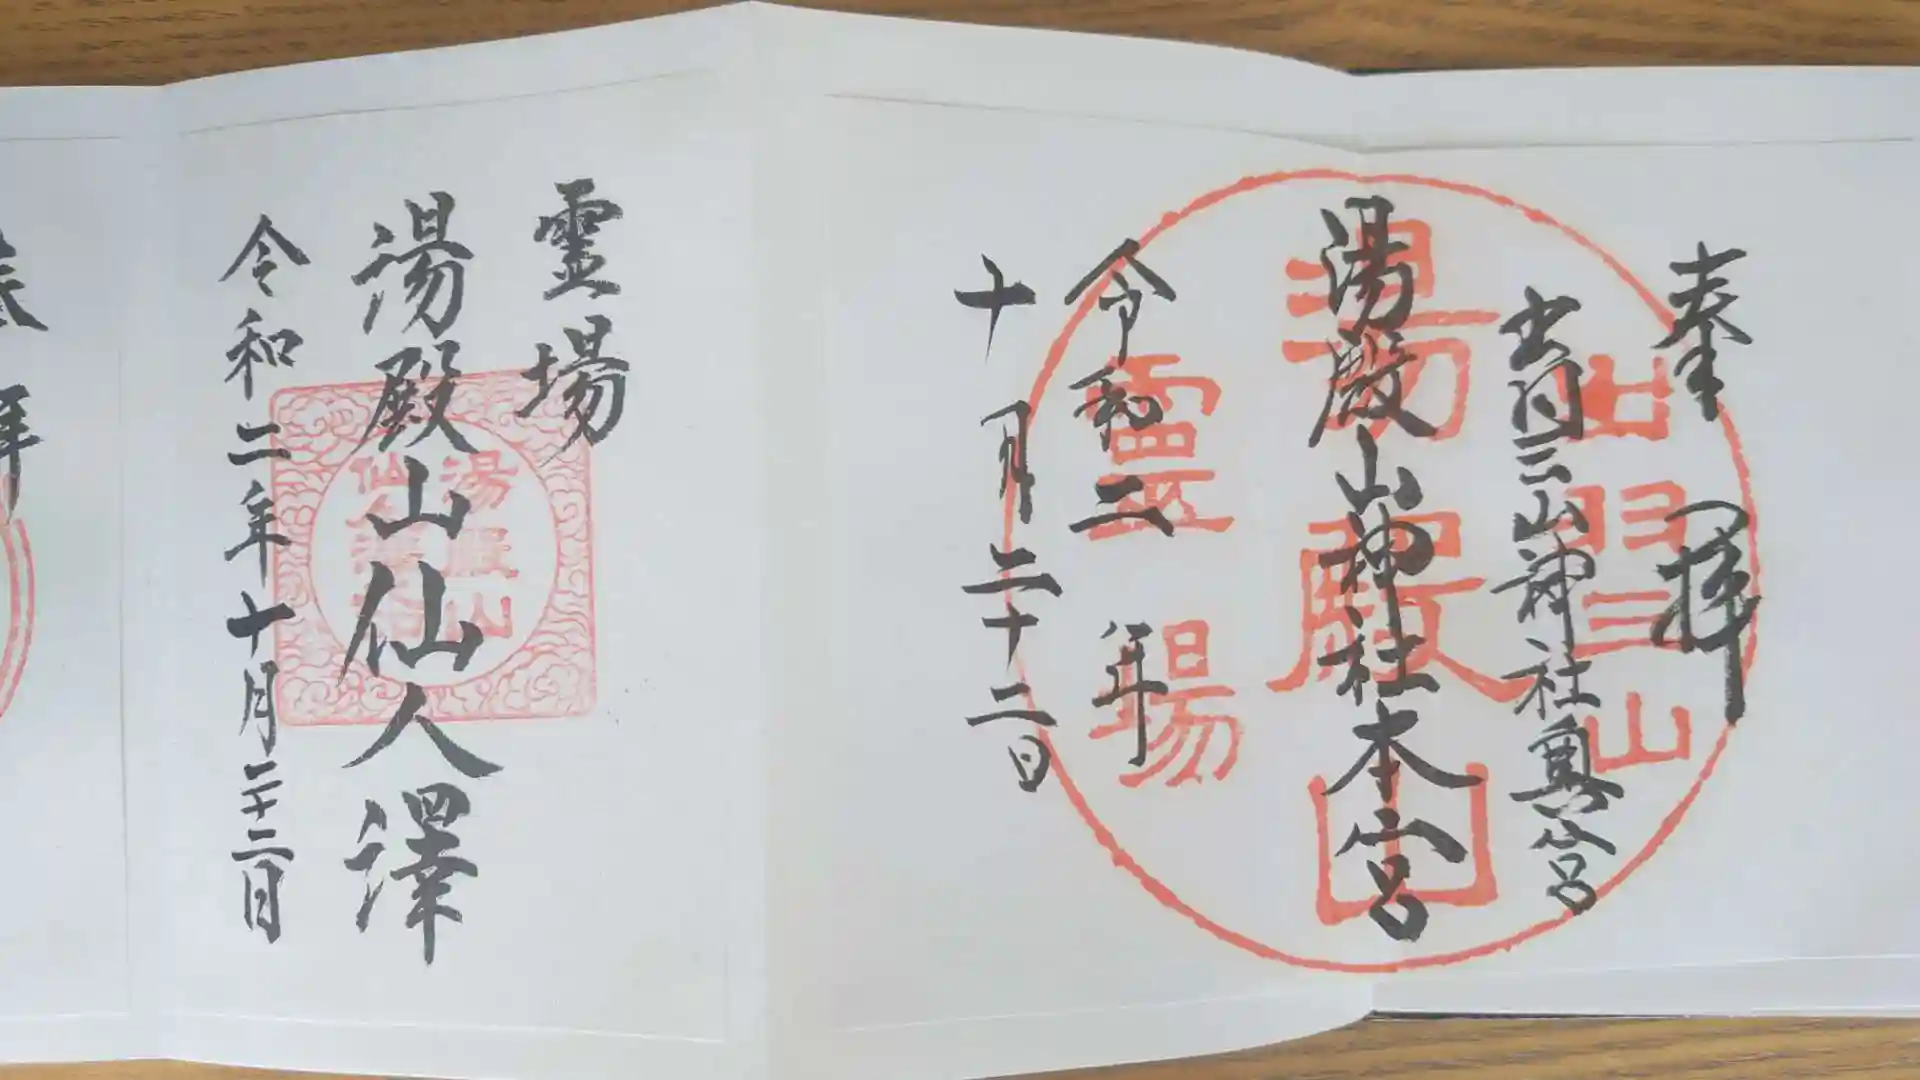 奉拝
出羽三山神社奥宮
湯殿山神社本宮
令和二年
十月二十二日
出羽三山
湯殿山
霊場
霊場
湯殿山仙人澤
令和二年十月二十二日
湯殿山